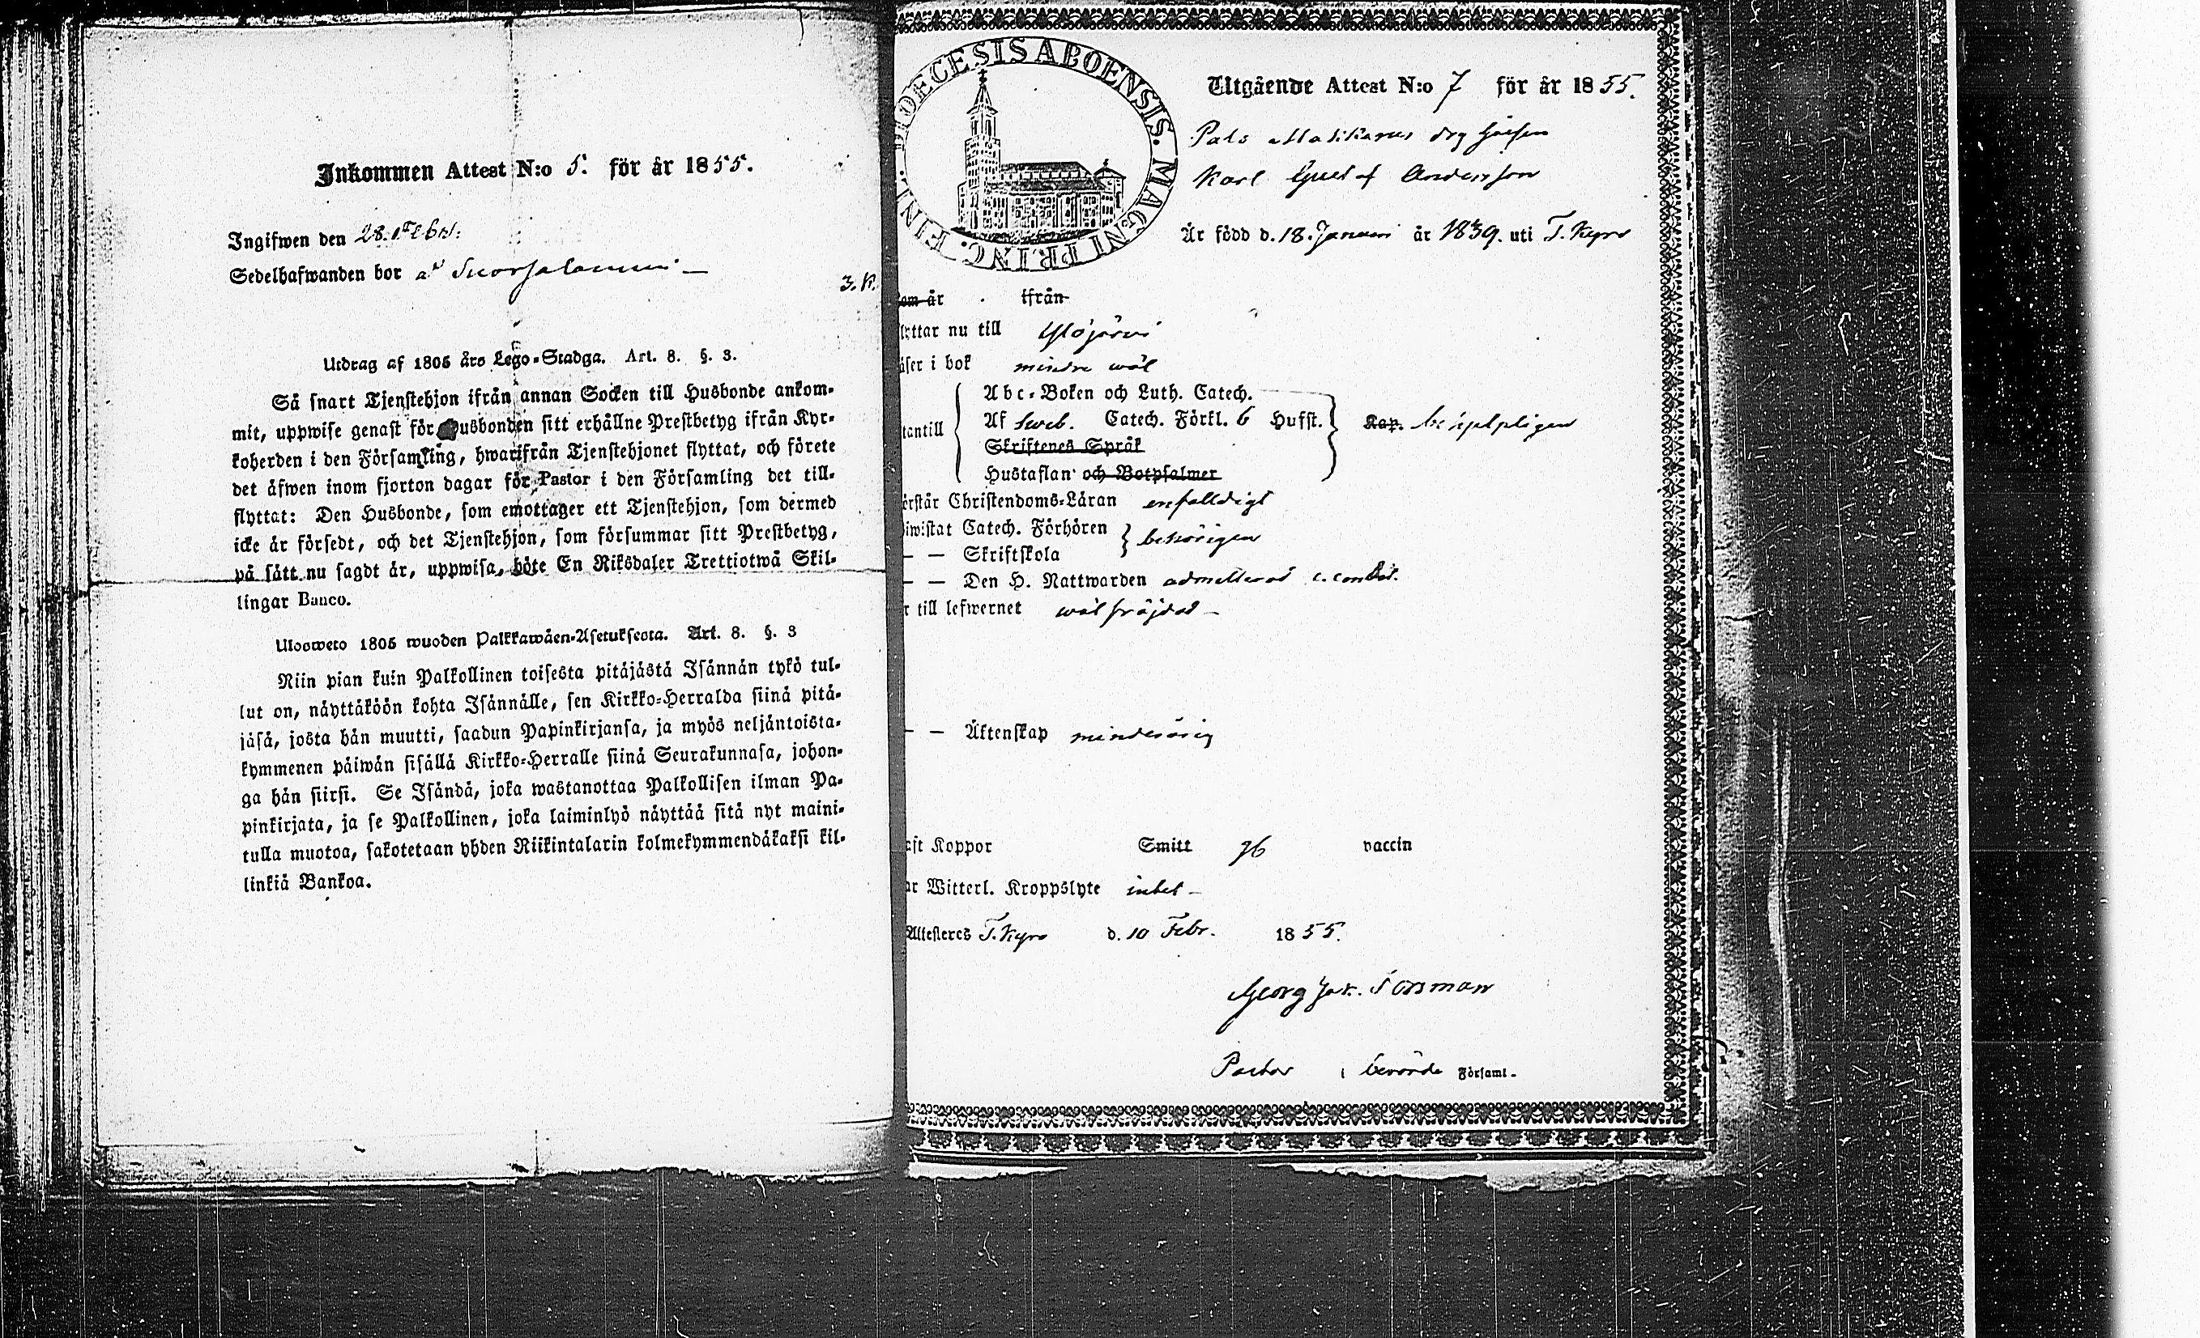 Inkommen Attest N:o 5. för år 1855.
Ingifwen den 28. Febr:
Sedelhafwanden bor
3. K.
Utdrag af 1805 års Lego-Stadga. Art. 8. §. 3.
Så snart Tjenstehjon ifrån annan Socken till Husbonde ankom-
mit, uppwise genast för Husbonden sitt erhållne Prestbetyg ifrån Kyr-
koherden i den Församling, hwarifrån Tjenstehjonet flyttat, och förete
det äfwen inom fjorton dagar för Pastor i den Församling det till-
flyttat: Den Husbonde, som emottager ett Tjenstehjon, som dermed
icke är försedt, och det Tjenstehjon, som försummar sitt Prestbetyg,
på sätt nu sagdt är, uppwisa, böte En Riksdaler Trettiotwå Skil-
lingar Banco.
Ulosweto 1805 wuoden Palkkawäen-Asetuksesta. Art. 8. §. 3
Niin pian kuin Palkollinen toisesta pitäjästä Isännän tykö tul-
lut on, näyttäköön kohta Isännälle, sen Kirkko-Herralda siinä pitä-
jäsä, josta hän muutti, saadun Papinkirjansa, ja myös neljäntoista-
kymmenen päiwän sisällä Kirkko-Herralle siinä Seurakunnasa, johon-
ga hän siirsi. Se Isändä, joka wastanottaa Palkollisen ilman Pa-
pinkirjata, ja se Palkollinen, joka laiminlyö näyttää sitä nyt maini-
tulla muotoa, sakotetaan yhden Riikintalarin kolmekymmendäkaksi kil-
linkiä Bankoa.
DIOECESIS ABOENSIS. MAGNI PRINC. FINL.
Utgående Attest N:o 7 för år 1855.
Karl Gustaf Andersson
Är född d. 18. Januari år 1839. uti T. Kyro
kom år ifrån
flyttar nu till Ylöjärvi
läser i bok mindre wäl
Abc-Boken och Luth. Catech.
utantill Af Sweb. Catech. Förkl. 6 Hufst. Kap.
Skriftenes Språk
Hustaflan och Botpsalmer
förstår Christendoms-Läran enfalldigt
biwistat Catech. Förhören behörigen
— — Skriftskola
— — Den H. Nattwarden admitterad
r till lefwernet wälfräjdad —
— — Äktenskap minderårig
haft Koppor Smitt vaccin
har Witterl. Kroppslyte intet —
Attesteres T. Kyro d. 10 Febr. 1855.
Georg Jak. Forsman
Pastor i berörde Församl.